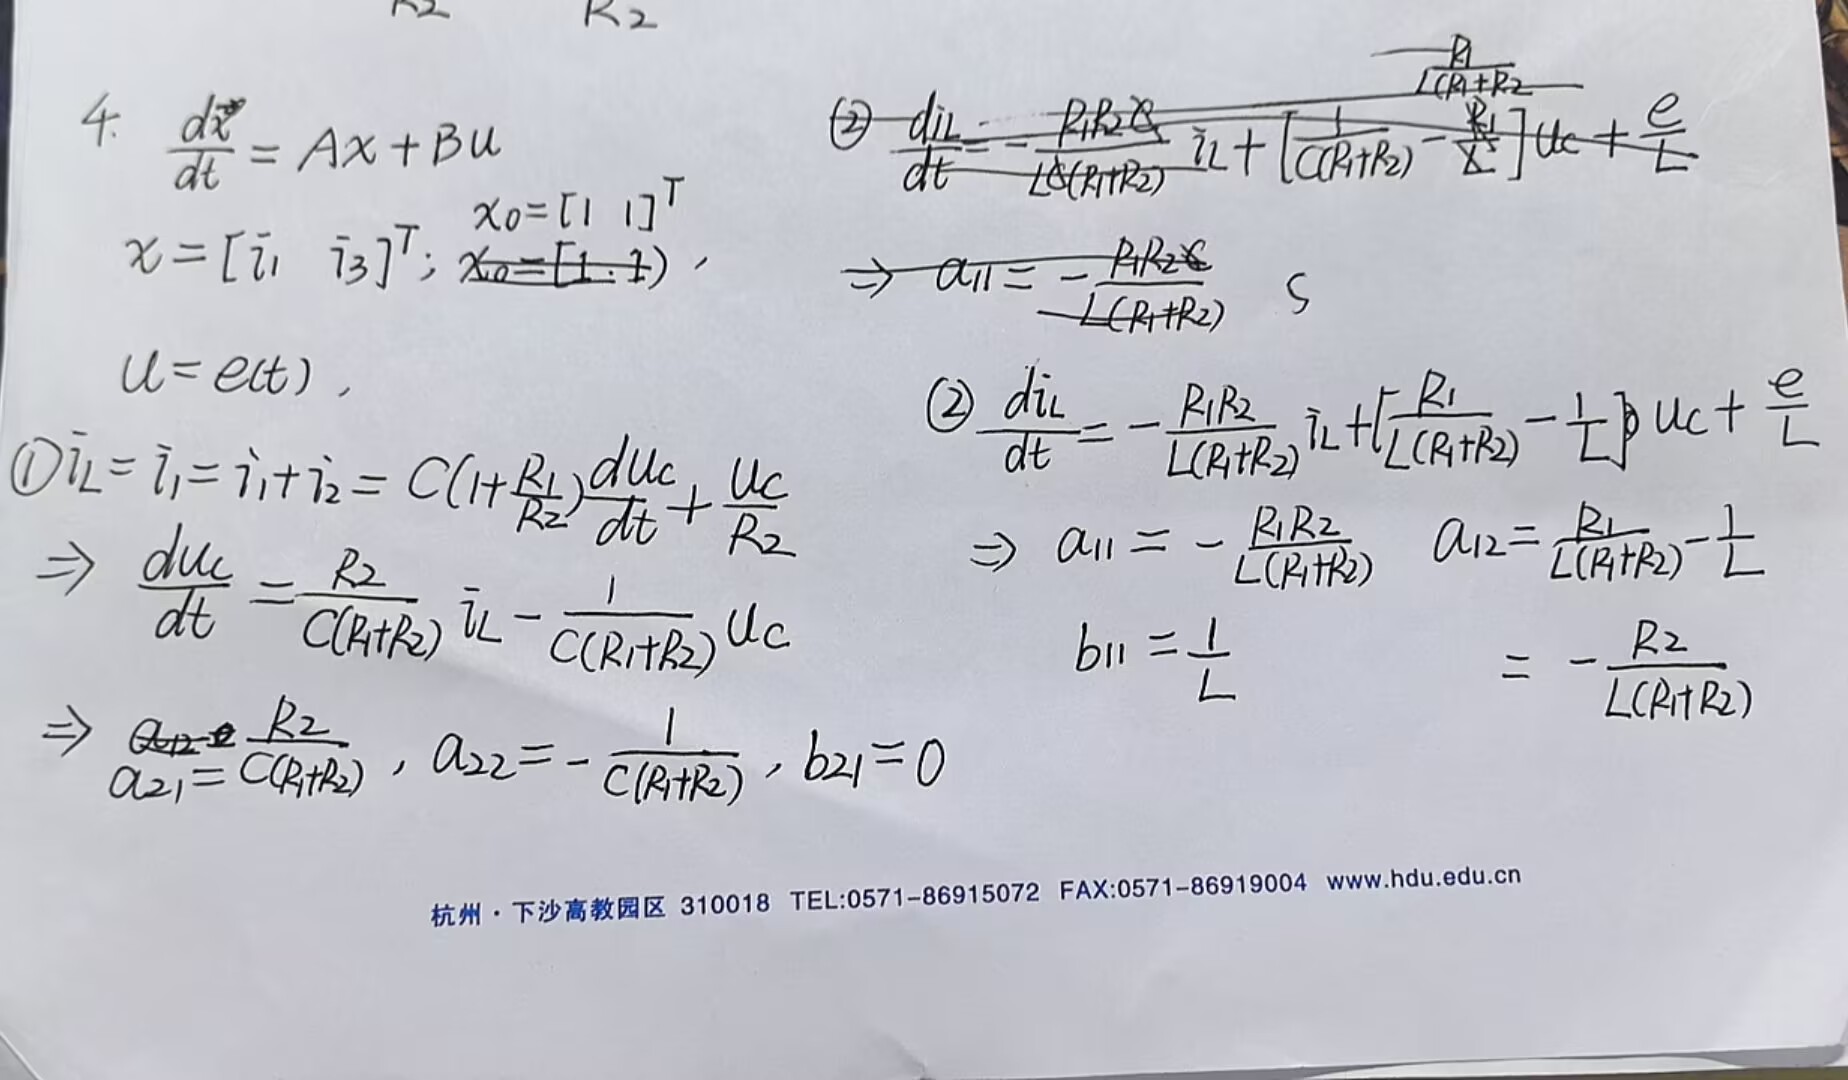 R2 R2
4. dx/dt = Ax + Bu
x0 = [1 1]^T
x = [i1 i3]^T; x0 = [1. 1),
u = e(t),
① iL = i1 = i1 + i2 = C(1 + R1/R2) duc/dt + uc/R2
⇒ duc/dt = R2/(C(R1+R2)) iL - 1/(C(R1+R2)) uc
⇒ a21 = R2/(C(R1+R2)), a22 = - 1/(C(R1+R2)), b21 = 0
R1/(L(R1+R2
② diL/dt = - R1R2C/(LC(R1+R2)) iL + [1/(C(R1+R2)) - R1/L] uc + e/L
⇒ a11 = - R1R2C/(L(R1+R2)) S
② diL/dt = - R1R2/(L(R1+R2)) iL + [R1/(L(R1+R2)) - 1/L] uc + e/L
⇒ a11 = - R1R2/(L(R1+R2)) a12 = R1/(L(R1+R2)) - 1/L
b11 = 1/L = - R2/(L(R1+R2))
杭州·下沙高教园区 310018 TEL:0571-86915072 FAX:0571-86919004 www.hdu.edu.cn